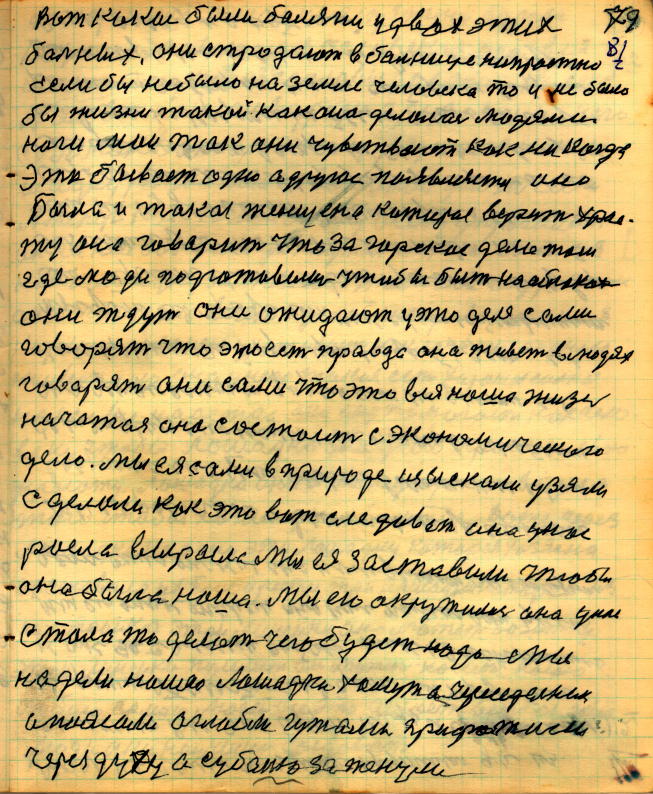 79
81
Вот какие были болячи у двох этих
больних, они стродают в больнице напрастно
если бы небыло на земле человека то и не было
бы жизни такой как она делолас людями.
ноги мои так они чувствают как никогда
Это бывает одно а другое появляется оно
Была и такая женщена которая верит хрис-
ту она говарит что за
где люди подготовилис чтобы быт на облаках
они ждут они ожидают у это дела сами
говорят что это ест правда она живет в людях
говарят они сами что это вся наша жизн
начатая она состоит с экономического
дело. мы ея сами в природе изыскали узяли
зделали как это вот следоват она унас
росла выросла мы ея заставили чтобы
она была наша. мы его окружили она унас
стала то делат чего будет надо мы
надели нашою лошадки хамут а череседелник
оглобли гужами
через дугу а субаню затенули